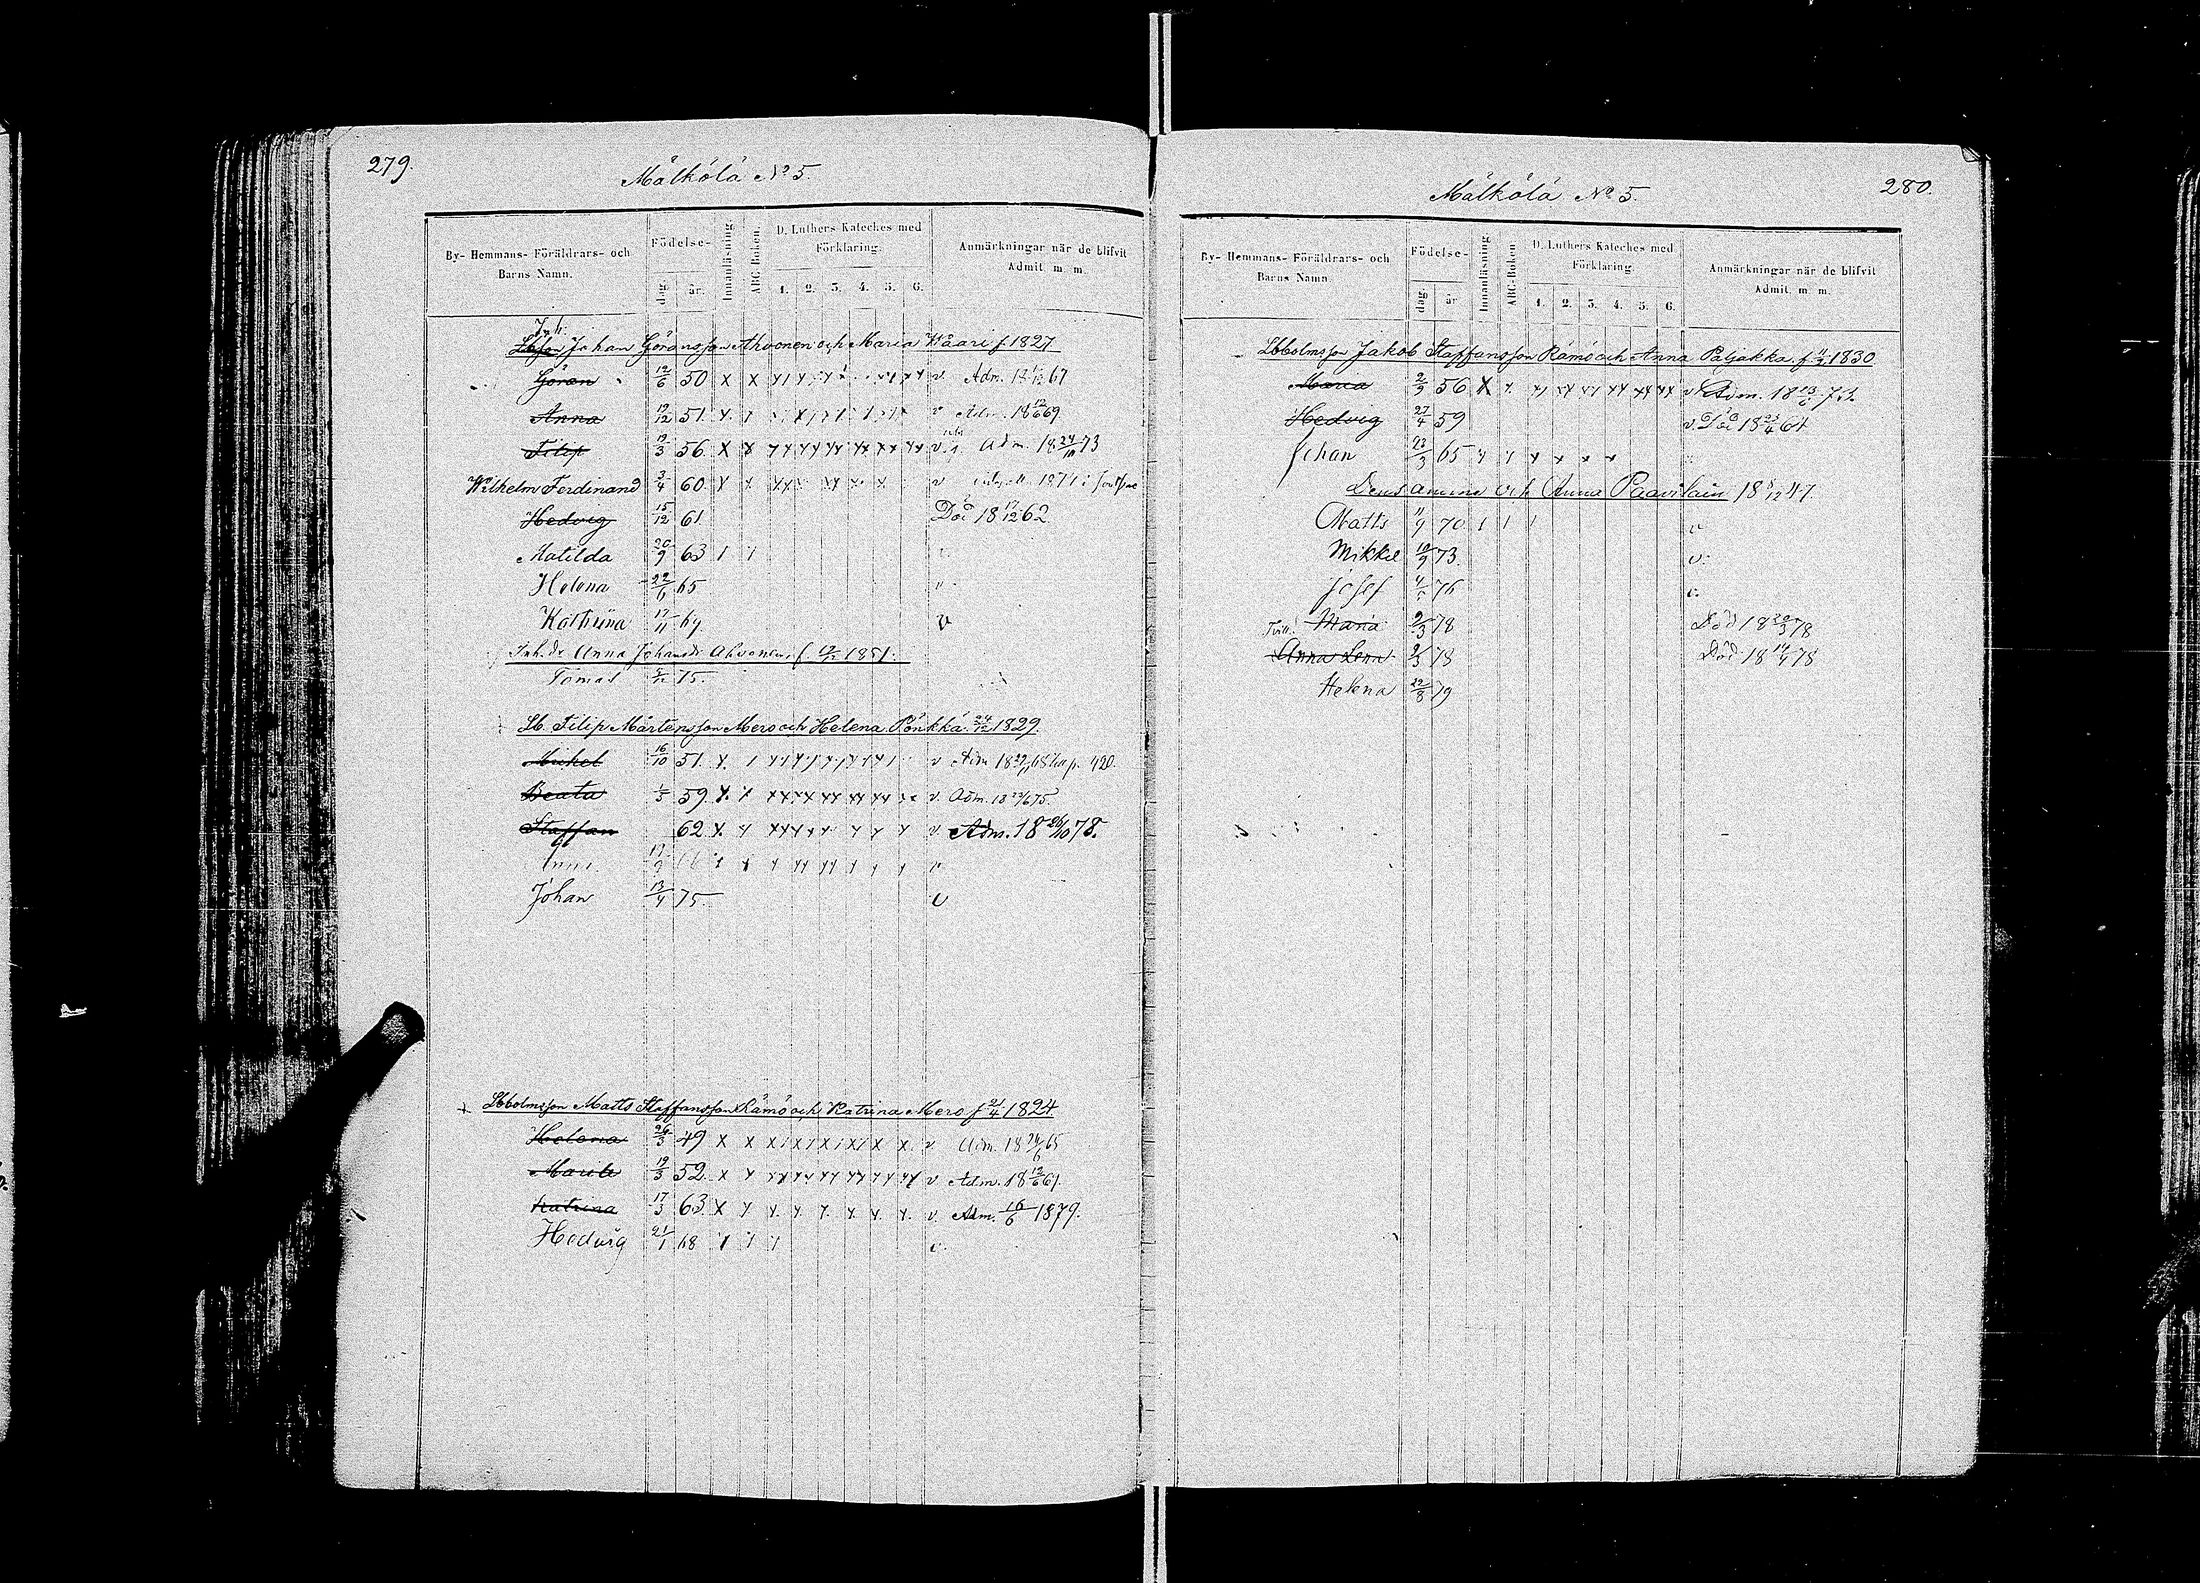 279.
Mälkölä No 5.
By- Hemmans- Föräldrars- och Barns Namn.
Födelse-
dag
år.
Innanläsning
ABC-Boken.
D. Luthers Kateches med Förklaring.
1. 2. 3. 4. 5. 6.
Anmärkningar när de blifvit Admit. m. m.
Inh.
Johan Göransson Ahvonen och Maria Kaari f. 1827
Göran 12/6 50 x x v Adm. 67
Anna 19/12 51. v Adm. 18 12/6 69
Filip 19/3 56. x x v. Adm. 18 24/10 73
Wilhelm Ferdinand 3/4 60. x x v
Hedvig 15/12 61. Död 18 17/12 62
Matilda 20/9 63 1 1
Helena 22/6 65
Kathrina 17/11 69. v
Inh. dr Anna Johansdr Ahvonen f. 19/12 1851.
Tomas 75.
Lb. Filip Mårtensson Mero och Helena Pönkkä 24/12 1829.
Mickel 16/10 51. v Adm. p. 420.
Beata 1/5 59 v. Adm. 18 75.
Staffan 62 v Adm. 18 26/10 78.
Anna v
Johan 13/4 75. v
Lbbolmsson Matts Staffansson Rämö och Katrina Mero f 21/4 1824.
Helena 26/3 49 x x v Adm. 18 65
Maria 19/3 52. x v Adm. 18 12/6 69.
Katrina 17/3 63. x v. Adm. 16/6 1879.
Hedvig 21/1 68 v.
280.
Mälkölä No 5.
By- Hemmans- Föräldrars- och Barns Namn.
Födelse-
dag
år
Innanläsning
ABC-Boken
D. Luthers Kateches med Förklaring.
1. 2. 3. 4. 5. 6.
Anmärkningar när de blifvit Admit. m. m.
Lbbolmsson Jakob Staffansson Rämö och Anna Paljakka f. 1830
Maria 2/3 56 X v Adm. 18
Hedvig 27/4 59 v. Död 18 23/4 64
Johan 23/3 65
Densamme och Anna Paavilain 18 47.
Matts 70 1 1 1 v
Mikkel 10/9 73. v.
Josef 76 v.
Tvill. Maria 2/3 78 Död 18 78
Anna Lena 2/3 78 Död 18 78
Helena 22/8 79